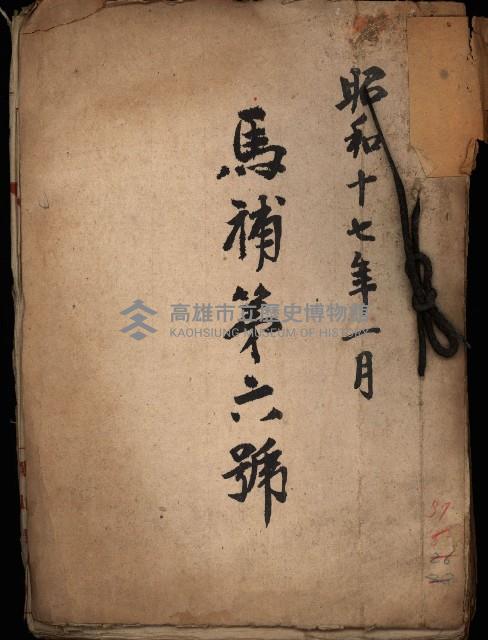 昭和十七年一月
馬補第六號
高雄市立歷史博物館
KAOHSIUNG MUSEUM OF HISTORY